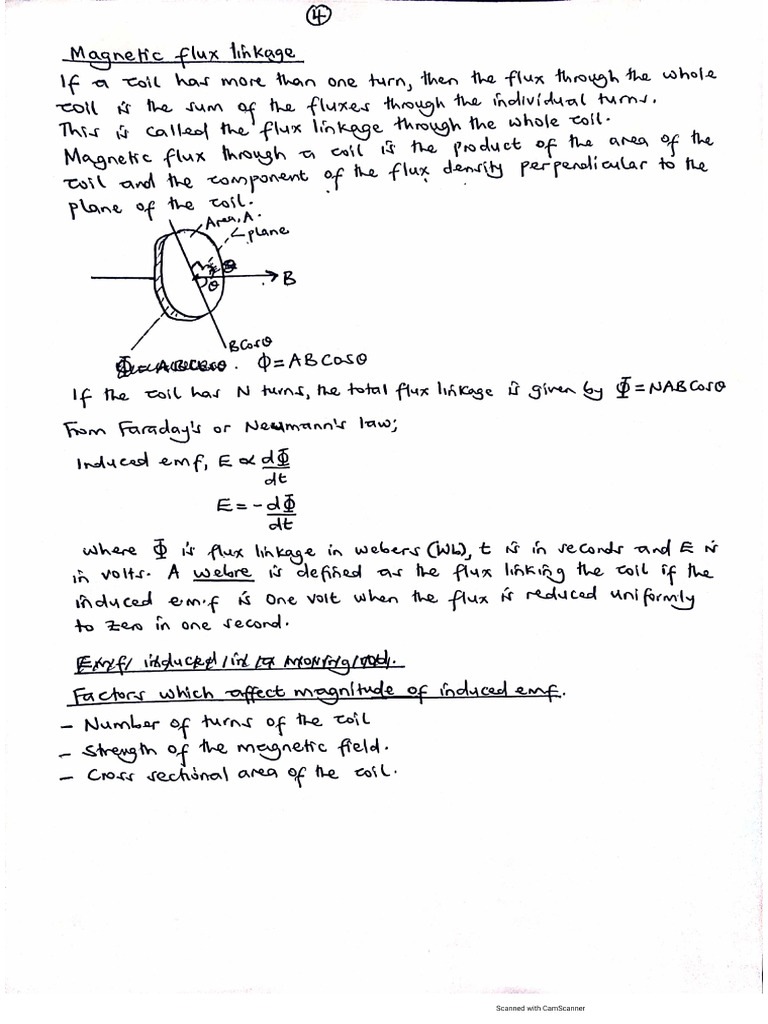 4
Magnetic flux linkage
If a coil has more than one turn, then the flux through the whole
coil is the sum of the fluxes through the individual turns.
This is called the flux linkage through the whole coil.
Magnetic flux through a coil is the product of the area of the
coil and the component of the flux density perpendicular to the
plane of the coil.
Area, A.
plane
θ
B
BCosθ
Φ = ABCosθ
If the coil has N turns, the total flux linkage is given by Φ = NABCosθ
From Faraday's or Neumann's law;
Induced emf, E ∝ dΦ/dt
E = -dΦ/dt
where Φ is flux linkage in webers (Wb), t is in seconds and E is
in volts. A webre is defined as the flux linking the coil if the
induced em.f is one volt when the flux is reduced uniformly
to zero in one second.
Emf induced in a moving rod.
Factors which affect magnitude of induced emf.
- Number of turns of the coil
- Strength of the magnetic field.
- Cross sectional area of the coil.
Scanned with CamScanner